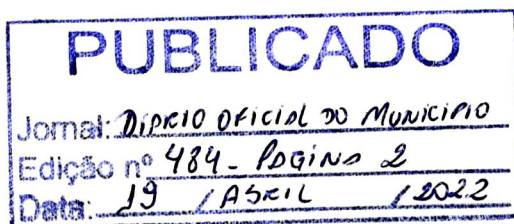 PUBLICADO
Jornal: DIÁRIO OFICIAL DO MUNICIPIO
Edição nº 484 - PÁGINA 2
Data: 19 / ABRIL / 2022